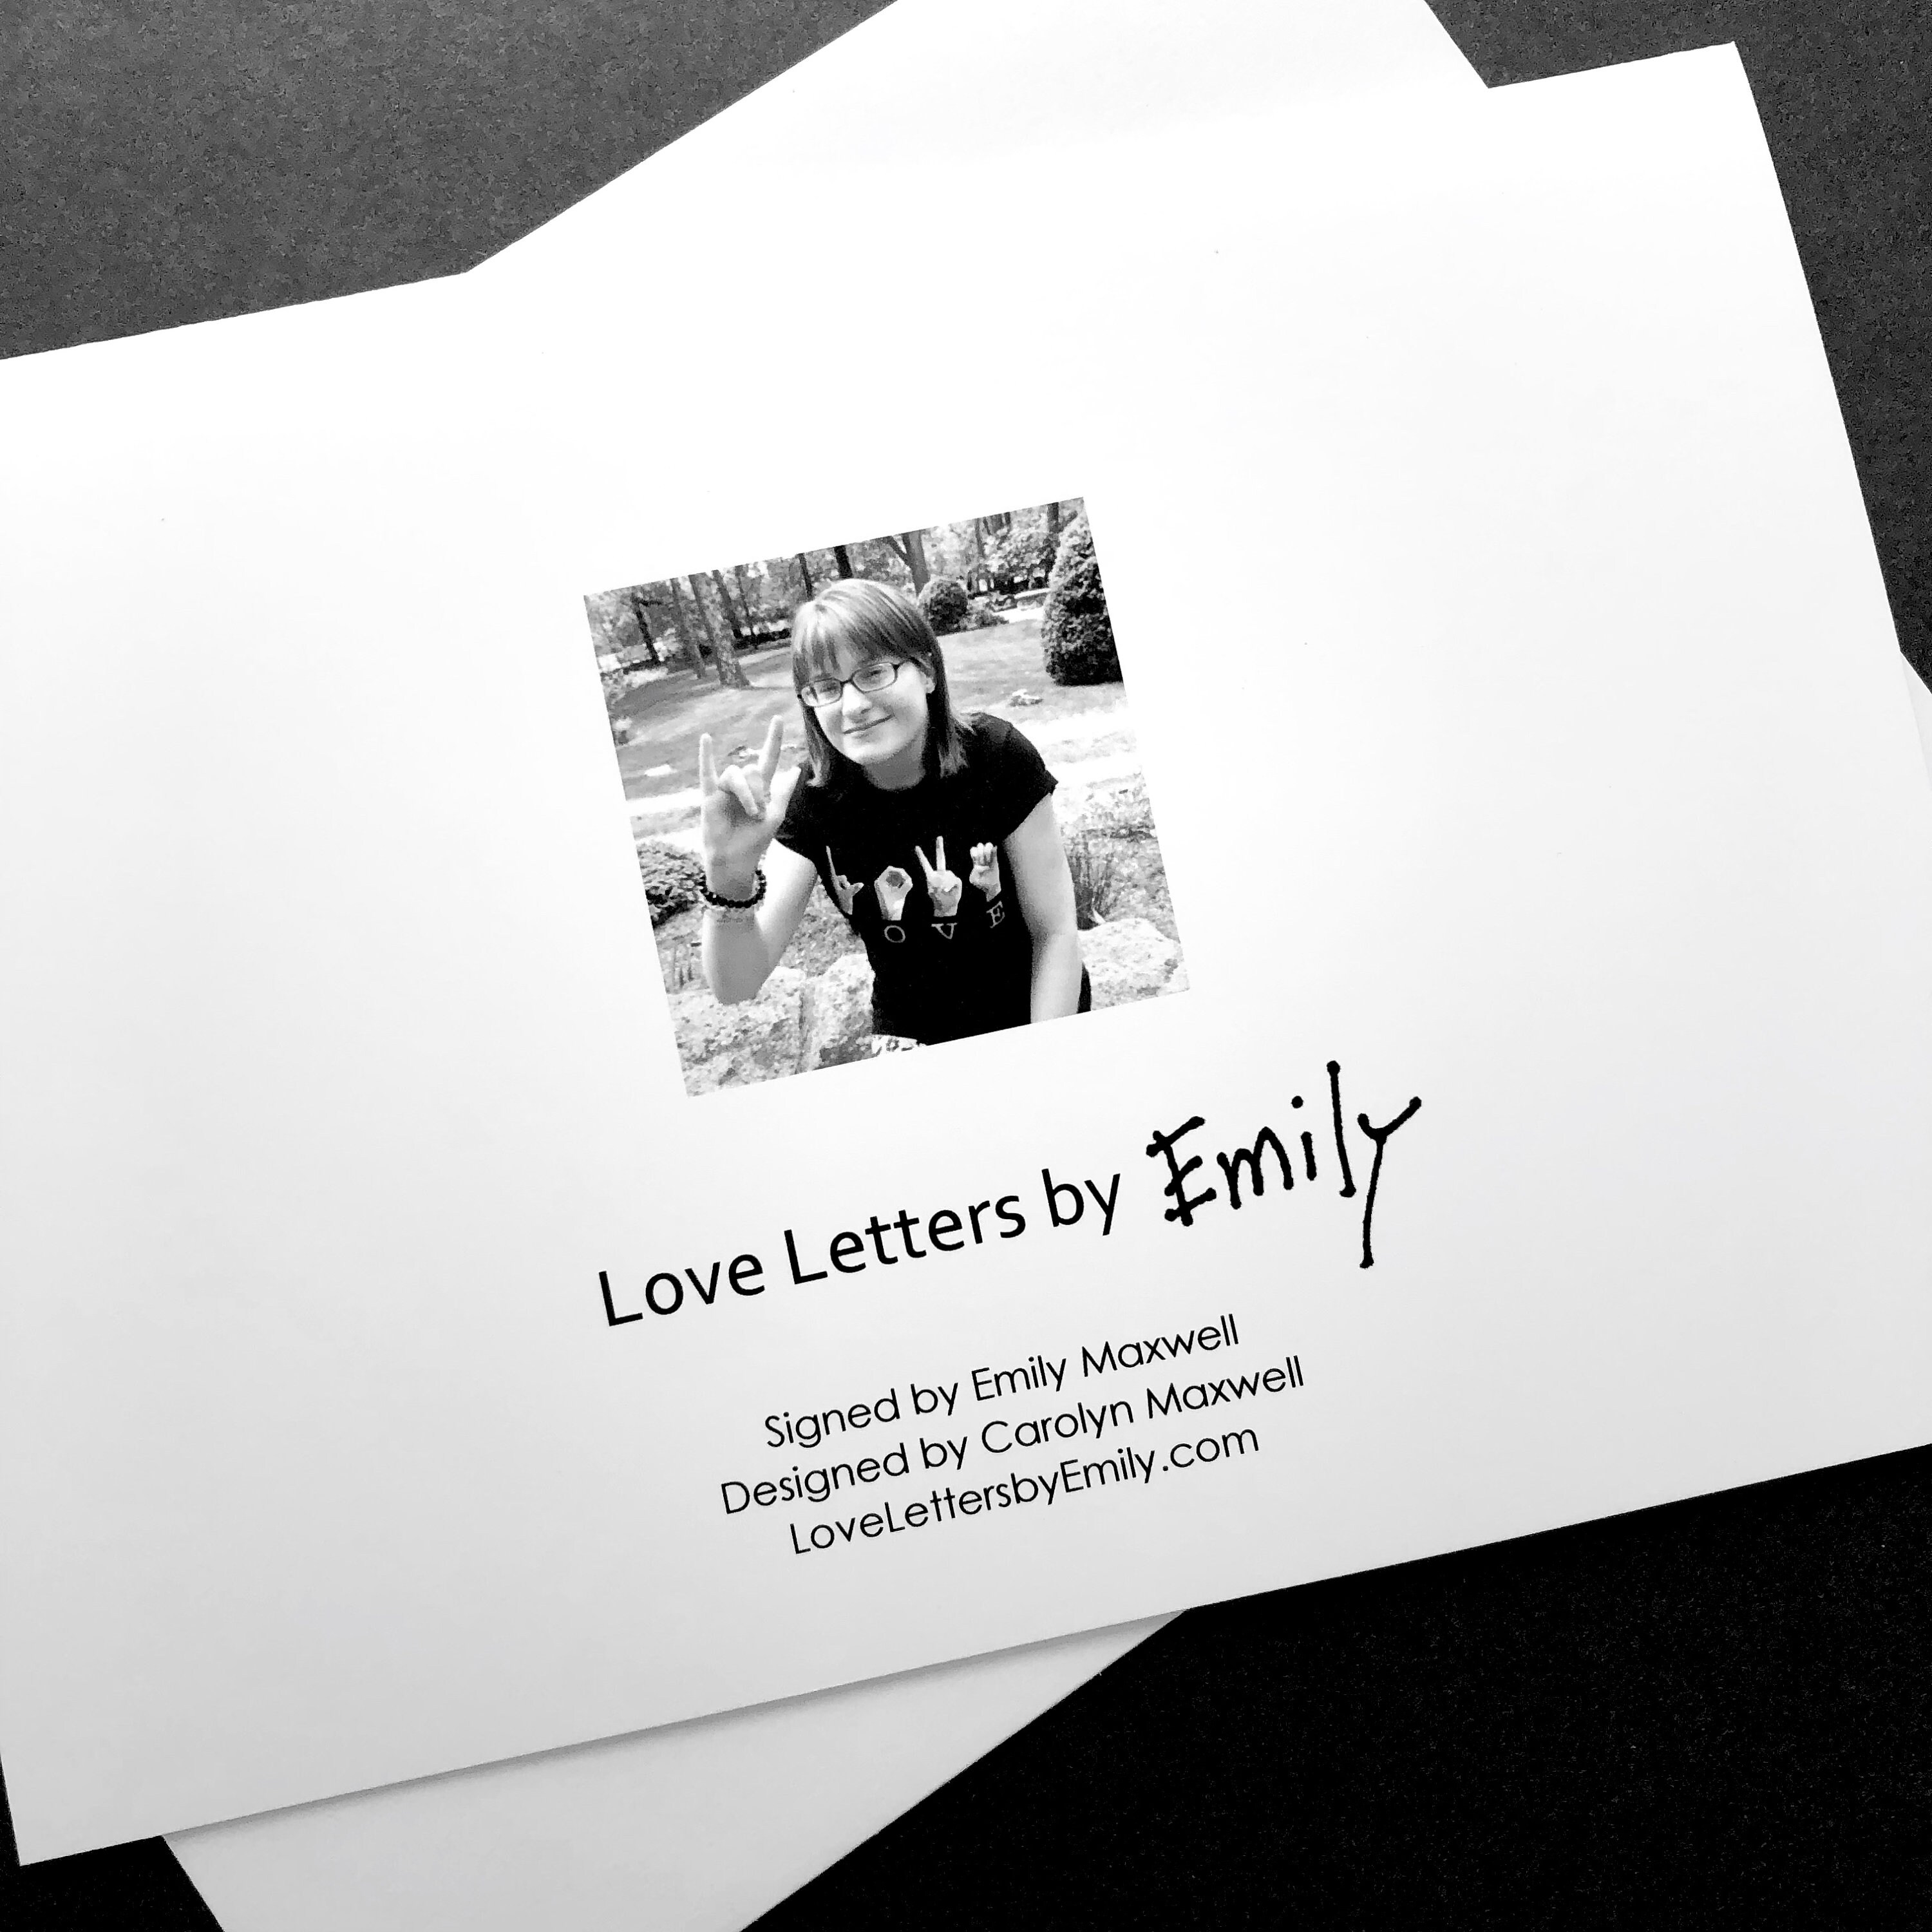 O V E
Love Letters by Emily
Signed by Emily Maxwell
Designed by Carolyn Maxwell
LoveLettersbyEmily.com